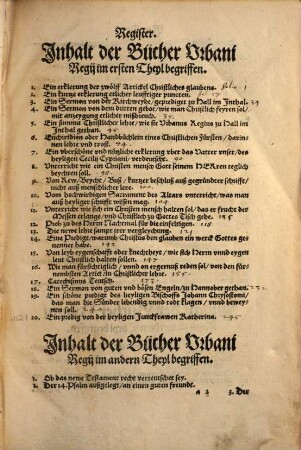 Register.
Inhalt der Bücher Vrbani
Regij im ersten Theyl begriffen.
1. Ein erklerung der zwölff Artickel Christliches glaubens.
2. Ein kurtze erklerung etlicher leufftiger puncten. 17
3. Ein Sermon von der Kirchweyhe, geprediget zu Hall im Inthal. 24
4. Ein Sermon von dem dritten gebot, wie man Christlich feyren sol/
mit anzeygung etlicher misbreuch. 30
5. Ein summa Christlicher lehre, wie sie Vrbanus Regius zu Hall im
Inthal gethan.
6. Enchiridion oder Handbüchlein eines Christlichen Fürsten, darin-
nen lehr vnd trost.
7. Ein vberschöne vnd nützliche erklerung vber das Vatter vnser, des
heyligen Cecilij Cypriani, verdeudscht. 90
8. Unterricht wie ein Christen mensch Gott seinem HErren teglich
beychten soll.
9. Von Rew, Beychte/ Buß/ kurtzer beschluß auß gegründter schrifft/
nicht auß menschlicher lere.
10. Vom hochwirdigen Sacrament des Altars unterricht, was man
auß heyliger schrifft wissen mag.
11. Unterricht wie sich ein Christen mensch halten sol/ das er frucht der
Messen erlange/ vnd Christlich zu Gottes Tisch gehe.
12. Dieb zu des Herrn Nachtmal für die einfeltigen.
13. Die newe lehre sampt jrer vergleychung. 121
14. Eine Prediget/ warumb Christus den glauben ein werck Gottes ge-
nennet habe.
15. Von leyb eygenschafft oder knechtheyt/ wie sich Herrn vnnd eygen
leut Christlich halten sollen. 147
16. Wie man fürsichtiglich/ vnnd on ergernuß reden sol/ von den für-
nemsten Artickeln Christlicher lehre. 155
17. Catechismus Teutsch.
18. Ein Sermon von guten vnd bösen Engeln/ zu Hannober gethan.
19. Ein schöne prediget des heyligen Bischoffs Johann Chrysostomi/
das man die Sünder lebendig vnnd todt klagen/ vnnd beweynen
soll.
20. Ein predig von der heyligen Junckfrawen Katherina. 245
Inhalt der Bücher Vrbani
Regij im andern Theyl begriffen.
1. Ob das newe Testament recht verteutschet sey.
2. Der 14. Psalm außgelegt/ an einen guten freunde.
a 2 3. Der